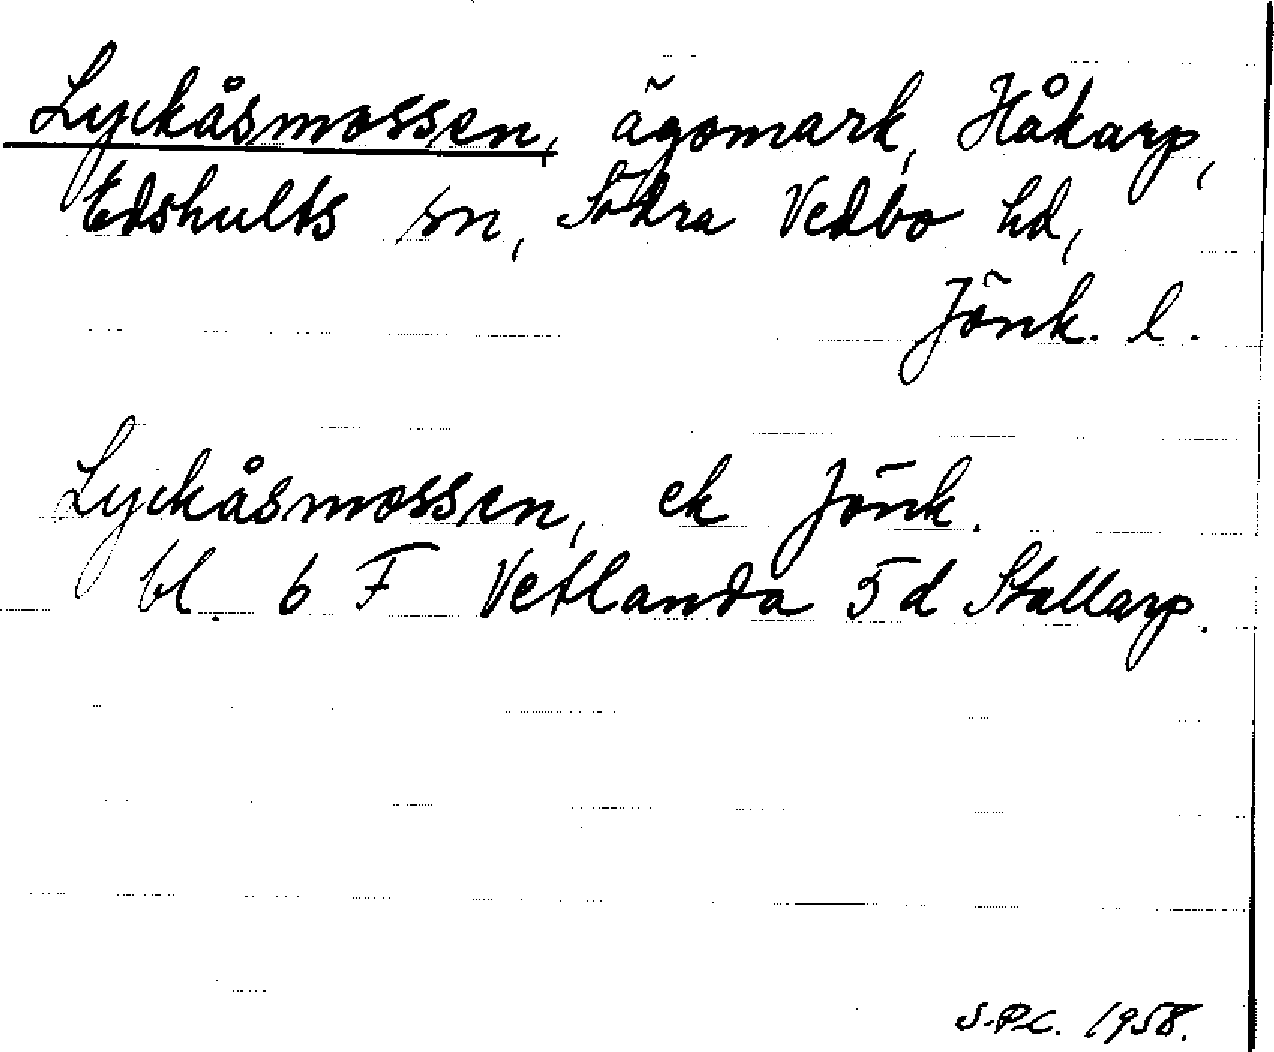 Lyckåsmossen, ägomark, Håkarp,
Edshults sn, Södra Vedbo hd,
Jönk. l.
Lyckåsmossen, ek Jönk.
bl. 6 F Vetlanda 5d Stallarp.
S.P.C. 1958.